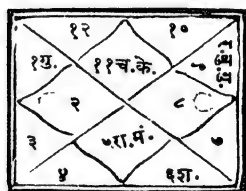 १२ १०
१गु. ११च.के. ९
२ ८
३ ५रा.मं. ७
४ ६श.